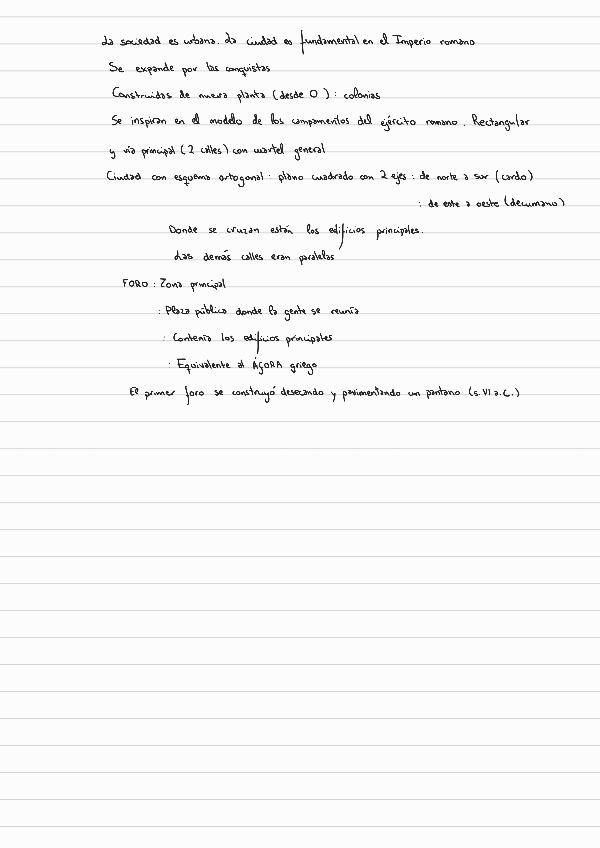 La sociedad es urbana. La ciudad es fundamental en el Imperio romano
Se expande por las conquistas
Construidas de nueva planta (desde 0): colonias
Se inspiran en el modelo de los campamentos del ejército romano. Rectangular
y vía principal (2 calles) con cuartel general
Ciudad con esquema ortogonal: plano cuadrado con 2 ejes: de norte a sur (cardo)
: de este a oeste (decumano)
Donde se cruzan están los edificios principales.
Las demás calles eran paralelas
FORO: Zona principal
: Plaza pública donde la gente se reunía
: Contenía los edificios principales
: Equivalente al ÁGORA griego
El primer foro se construyó desecando y pavimentando un pantano (s. VI a.C.)